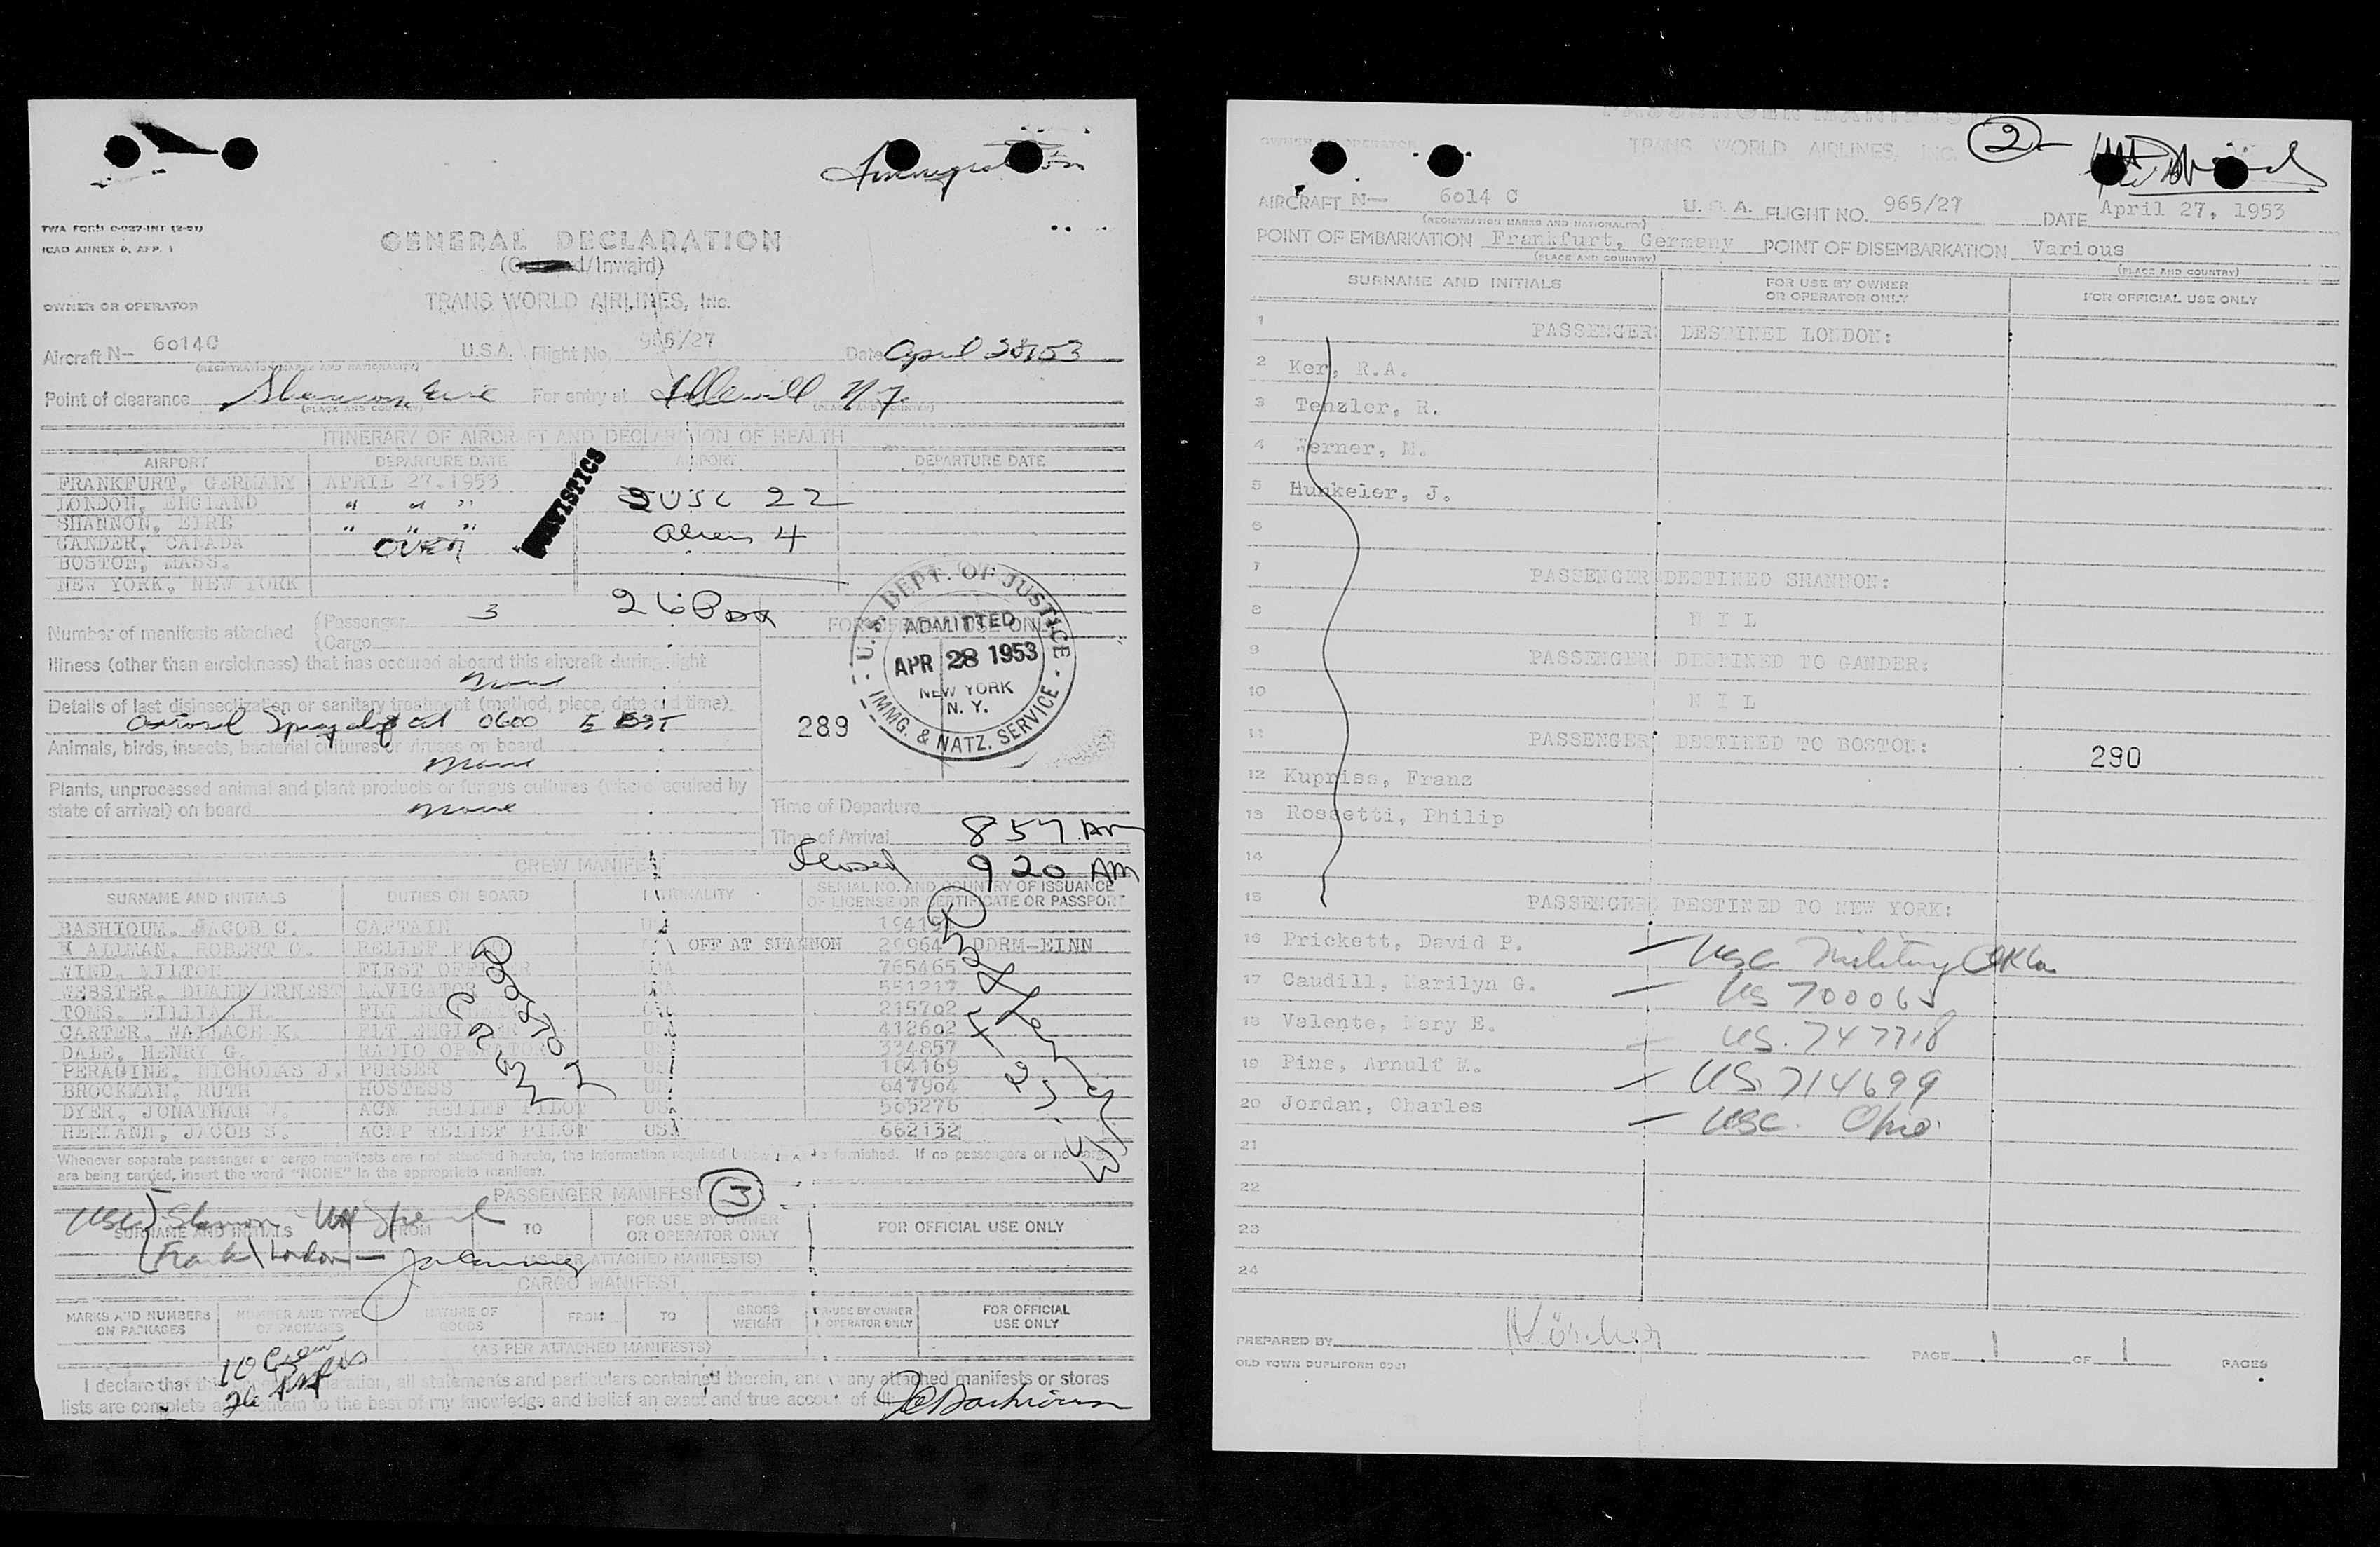 Immigration
TWA FORM C-027-INT (2-51)
ICAO ANNEX 9, APP. 1
GENERAL DECLARATION
/Inward)
OWNER OR OPERATOR
TRANS WORLD AIRLINES, Inc.
Aircraft N- 6014C U.S.A. Flight No. 965/27 Date April 28, 53
(REGISTRATION MARKS AND NATIONALITY)
Point of clearance Shannon, Eire For entry at Idlewild N.Y.
(PLACE AND COUNTRY) (PLACE AND COUNTRY)
ITINERARY OF AIRCRAFT AND DECLARATION OF HEALTH
AIRPORT DEPARTURE DATE AIRPORT DEPARTURE DATE
FRANKFURT, GERMANY APRIL 27.1953
LONDON, ENGLAND " " "
SHANNON, EIRE " " "
GANDER, CANADA OVER
BOSTON, MASS.
NEW YORK, NEW YORK
USC 22
Aliens 4
26 Pax
Number of manifests attached
Passenger 3
Cargo
FOR OFFICIAL USE ONLY
U.S. DEPT. OF JUSTICE
ADMITTED
APR 28 1953
NEW YORK
N. Y.
IMMG. & NATZ. SERVICE
289
Illness (other than airsickness) that has occured aboard this aircraft during flight
None
Details of last disinsectization or sanitary treatment (method, place, date and time).
0600 EST
Animals, birds, insects, bacterial cultures or viruses on board
None
Plants, unprocessed animal and plant products or fungus cultures (where required by
state of arrival) on board None
Time of Departure
Time of Arrival 857 AM
Closed 920 AM
CREW MANIFEST
SURNAME AND INITIALS DUTIES ON BOARD NATIONALITY SERIAL NO. AND COUNTRY OF ISSUANCE
OF LICENSE OR CERTIFICATE OR PASSPORT
BASHIOUM, JACOB C. CAPTAIN
ALLMAN, ROBERT O. RELIEF PILOT OFF AT SHANNON 20964 DDRM-EINN
WIND, MILTON FIRST OFFICER USA 765465
WEBSTER, DUANE ERNEST NAVIGATOR USA 551217
TOMS, WILLIAM H. FLT ENGINEER USA 215702
CARTER, WALLACE K. FLT ENGINEER USA 412602
DALE, HENRY G. RADIO OPERATOR USA 334857
PERAGINE, NICHOLAS J. PURSER USA 184169
BROCKMAN, RUTH HOSTESS USA 647964
DYER, JONATHAN W. ACM RELIEF PILOT USA 565276
HERMANN, JACOB S. ACMP RELIEF PILOT USA 662132
Whenever separate passenger or cargo manifests are not attached hereto, the information required below must be furnished. If no passengers or no cargo
are being carried, insert the word "NONE" in the appropriate manifest.
PASSENGER MANIFEST 3
SURNAME AND INITIALS FROM TO FOR USE BY OWNER
OR OPERATOR ONLY FOR OFFICIAL USE ONLY
USC Shannon
Frank London
(AS PER ATTACHED MANIFESTS)
CARGO MANIFEST
MARKS AND NUMBERS
ON PACKAGES NUMBER AND TYPE
OF PACKAGES NATURE OF
GOODS FROM TO GROSS
WEIGHT FOR USE BY OWNER
OR OPERATOR ONLY FOR OFFICIAL
USE ONLY
(AS PER ATTACHED MANIFESTS)
10 Crew
26
I declare that this declaration, all statements and particulars contained therein, and any attached manifests or stores
lists are complete and contain to the best of my knowledge and belief an exact and true account of
JC Bashioum
PASSENGER MANIFEST
OWNER OR OPERATOR TRANS WORLD AIRLINES, INC. 2
AIRCRAFT N- 6014 C U. S. A. FLIGHT NO. 965/27 DATE April 27, 1953
(REGISTRATION MARKS AND NATIONALITY)
POINT OF EMBARKATION Frankfurt, Germany POINT OF DISEMBARKATION Various
(PLACE AND COUNTRY) (PLACE AND COUNTRY)
SURNAME AND INITIALS FOR USE BY OWNER
OR OPERATOR ONLY FOR OFFICIAL USE ONLY
1 PASSENGER DESTINED LONDON:
2 Ker, R.A.
3 Tenzler, R.
4 Werner, M.
5 Hunkeler, J.
6
7 PASSENGER DESTINED SHANNON:
8 N I L
9 PASSENGER DESTINED TO GANDER:
10 N I L
11 PASSENGER DESTINED TO BOSTON: 290
12 Kupriss, Franz
13 Rossetti, Philip
14
15 PASSENGER DESTINED TO NEW YORK:
16 Prickett, David P. — USC Military Okla
17 Caudill, Marilyn G. — US 700065
18 Valente, Mary E. — US. 747718
19 Pins, Arnulf M. — US. 714699
20 Jordan, Charles — USC. Ohio
21
22
23
24
PREPARED BY PAGE 1 OF 1 PAGES
OLD TOWN DUPLIFORM